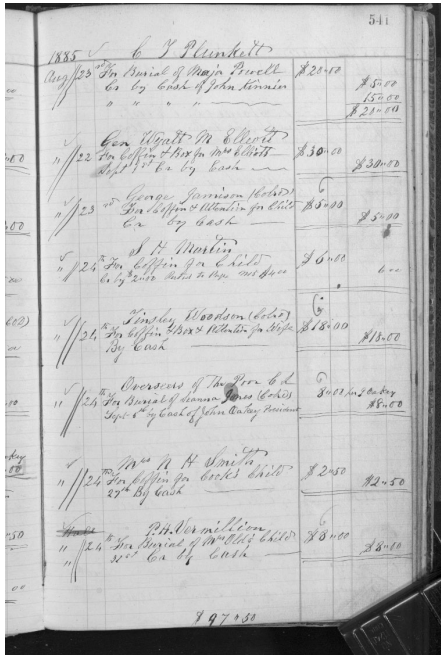 541
1885 C T Plunkett
Aug 23rd For Burial of Major Powell $20.00
Cr by Cash of John Kinnier $5.00
" " " " 15.00
$20.00
Gen Wyatt M Elliott
" 22 For Coffin & Box for Mrs Elliott $30.00
Sept 1st Cr by Cash $30.00
George Jamison (Cold)
" 23rd For Coffin & Attention for Child $5.00
Cr by Cash $5.00
S H Martin
" 24th For Coffin for Child $6.00
Cr by 2.00 $4.00 6.00
Tinsley Woodson (Cold)
" 24th For Coffin & Box & Attention for Wife $18.00
By Cash $18.00
Overseers of The Poor C L
" 24th For Burial of Jones (Cold) 8.00
Sept 5th by Cash of John Oakey President $8.00
Mrs N H Smith
" 24th For Coffin for Cook's Child $2.50
27th By Cash $2.50
P. A. Vermillion
" 24th For Burial of Mrs Old's Child $8.00
" 31st Cr by Cash $8.00
$97.50